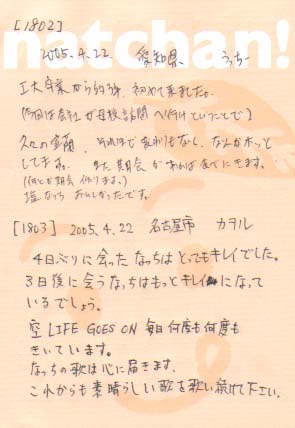 natchan!
[1802]
2005.4.22 愛知県 うっちー
工大卒業から約3年、初めて来ました。
(今回は会社が母校訪問へ行けということで)
久々の室蘭、それほど変わりもなく、なんかホッと
してます。また機会があればまたにきます。
(何とか機会作ります。)
塩なっち おいしかったです。
[1803] 2005.4.22 名古屋市 カヲル
4日ぶりに会ったなっちはとってもキレイでした。
3日後に会うなっちはもっとキレイになって
いるでしょう。
空 LIFE GOES ON 毎日何度も何度も
きいています。
なっちの歌は心に届きます。
これからも素晴らしい歌を歌い続けて下さい。